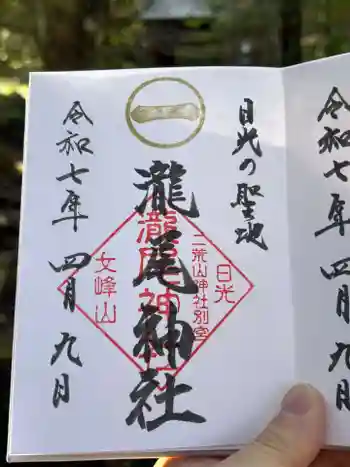 日光の聖地
一
瀧尾神社
日光
二荒山神社別宮
瀧尾神社
女峰山
令和七年四月九月
令和七年四月九月